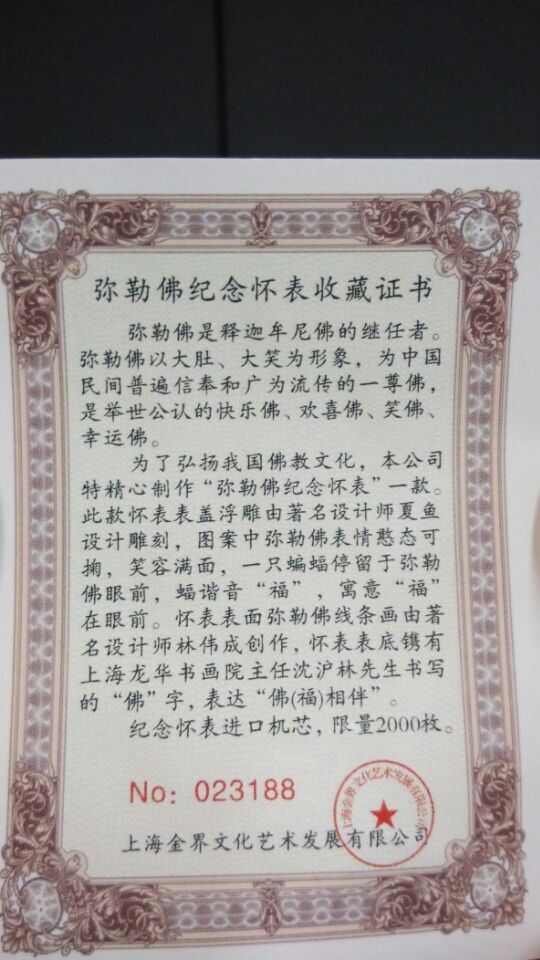 弥勒佛纪念怀表收藏证书
弥勒佛是释迦牟尼佛的继任者。
弥勒佛以大肚、大笑为形象，为中国
民间普遍信奉和广为流传的一尊佛，
是举世公认的快乐佛、欢喜佛、笑佛、
幸运佛。
为了弘扬我国佛教文化，本公司
特精心制作“弥勒佛纪念怀表”一款。
此款怀表表盖浮雕由著名设计师夏鱼
设计雕刻，图案中弥勒佛表情憨态可
掬，笑容满面，一只蝙蝠停留于弥勒
佛眼前，蝠谐音“福”，寓意“福”
在眼前。怀表表面弥勒佛线条画由著
名设计师林伟成创作，怀表表底镌有
上海龙华书画院主任沈沪林先生书写
的“佛”字，表达“佛(福)相伴”。
纪念怀表进口机芯，限量2000枚。
No: 023188
上海金界文化艺术发展有限公司
上海金界文化艺术发展有限公司